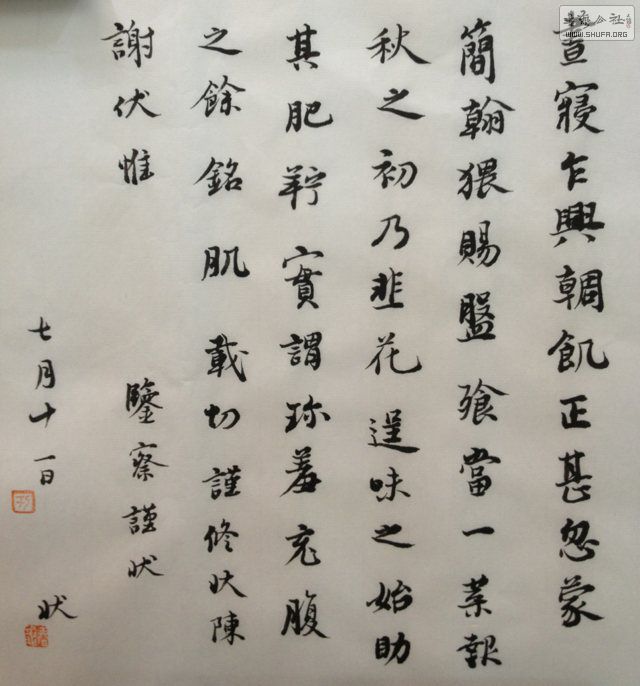 晝寢乍興輖飢正甚忽蒙
簡翰猥賜盤飧當一葉報
秋之初乃韭花逞味之始助
其肥羜實謂珎羞充腹
之餘銘肌載切謹修狀陳
謝伏惟
鑒察謹狀
七月十一日
狀
公社
WWW.SHUFA.ORG